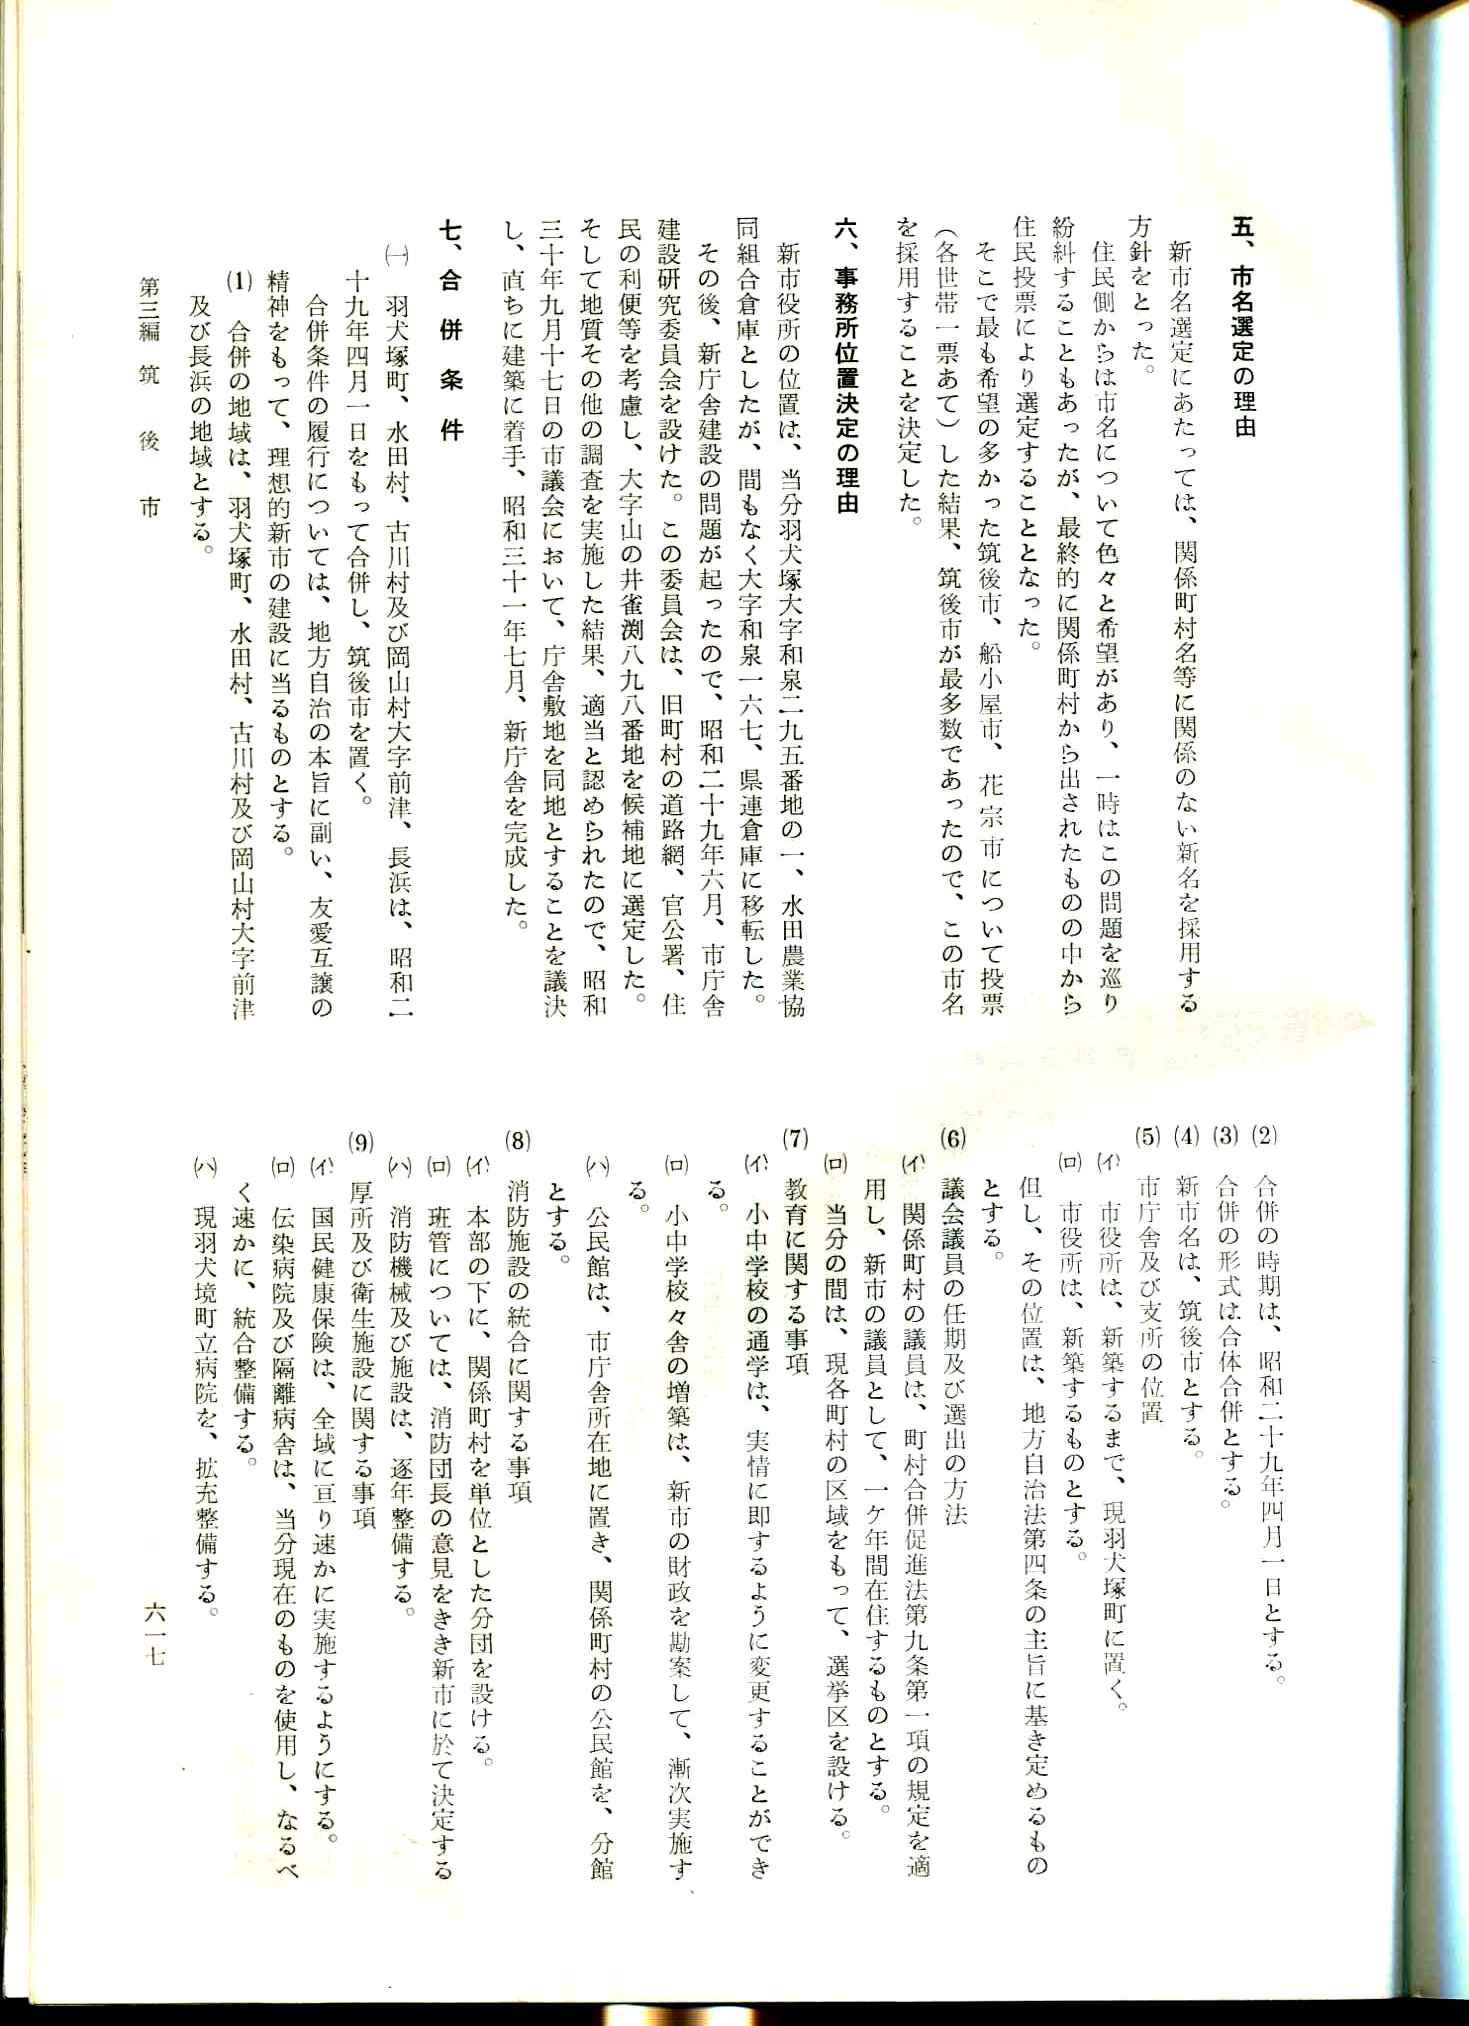 五、市名選定の理由
新市名選定にあたっては、関係町村名等に関係のない新名を採用する
方針をとった。
住民側からは市名について色々と希望があり、一時はこの問題を巡り
紛糾することもあったが、最終的に関係町村から出されたものの中から
住民投票により選定することとなった。
そこで最も希望の多かった筑後市、船小屋市、花宗市について投票
（各世帯一票あて）した結果、筑後市が最多数であったので、この市名
を採用することを決定した。
六、事務所位置決定の理由
新市役所の位置は、当分羽犬塚大字和泉二九五番地の一、水田農業協
同組合倉庫としたが、間もなく大字和泉一六七、県連倉庫に移転した。
その後、新庁舎建設の問題が起ったので、昭和二十九年六月、市庁舎
建設研究委員会を設けた。この委員会は、旧町村の道路網、官公署、住
民の利便等を考慮し、大字山の井雀渕八九八番地を候補地に選定した。
そして地質その他の調査を実施した結果、適当と認められたので、昭和
三十年九月十七日の市議会において、庁舎敷地を同地とすることを議決
し、直ちに建築に着手、昭和三十一年七月、新庁舎を完成した。
七、合併条件
㈠　羽犬塚町、水田村、古川村及び岡山村大字前津、長浜は、昭和二
十九年四月一日をもって合併し、筑後市を置く。
合併条件の履行については、地方自治の本旨に副い、友愛互譲の
精神をもって、理想的新市の建設に当るものとする。
(1)　合併の地域は、羽犬塚町、水田村、古川村及び岡山村大字前津
及び長浜の地域とする。
(2)　合併の時期は、昭和二十九年四月一日とする。
(3)　合併の形式は合体合併とする。
(4)　新市名は、筑後市とする。
(5)　市庁舎及び支所の位置
(イ)　市役所は、新築するまで、現羽犬塚町に置く。
(ロ)　市役所は、新築するものとする。
但し、その位置は、地方自治法第四条の主旨に基き定めるもの
とする。
(6)　議会議員の任期及び選出の方法
(イ)　関係町村の議員は、町村合併促進法第九条第一項の規定を適
用し、新市の議員として、一ケ年間在住するものとする。
(ロ)　当分の間は、現各町村の区域をもって、選挙区を設ける。
(7)　教育に関する事項
(イ)　小中学校の通学は、実情に即するように変更することができ
る。
(ロ)　小中学校々舎の増築は、新市の財政を勘案して、漸次実施す
る。
(ハ)　公民館は、市庁舎所在地に置き、関係町村の公民館を、分館
とする。
(8)　消防施設の統合に関する事項
(イ)　本部の下に、関係町村を単位とした分団を設ける。
(ロ)　班管については、消防団長の意見をきき新市に於て決定する
(ハ)　消防機械及び施設は、逐年整備する。
(9)　厚所及び衛生施設に関する事項
(イ)　国民健康保険は、全域に亘り速かに実施するようにする。
(ロ)　伝染病院及び隔離病舎は、当分現在のものを使用し、なるべ
く速かに、統合整備する。
(ハ)　現羽犬境町立病院を、拡充整備する。
第三編　筑後市
六一七